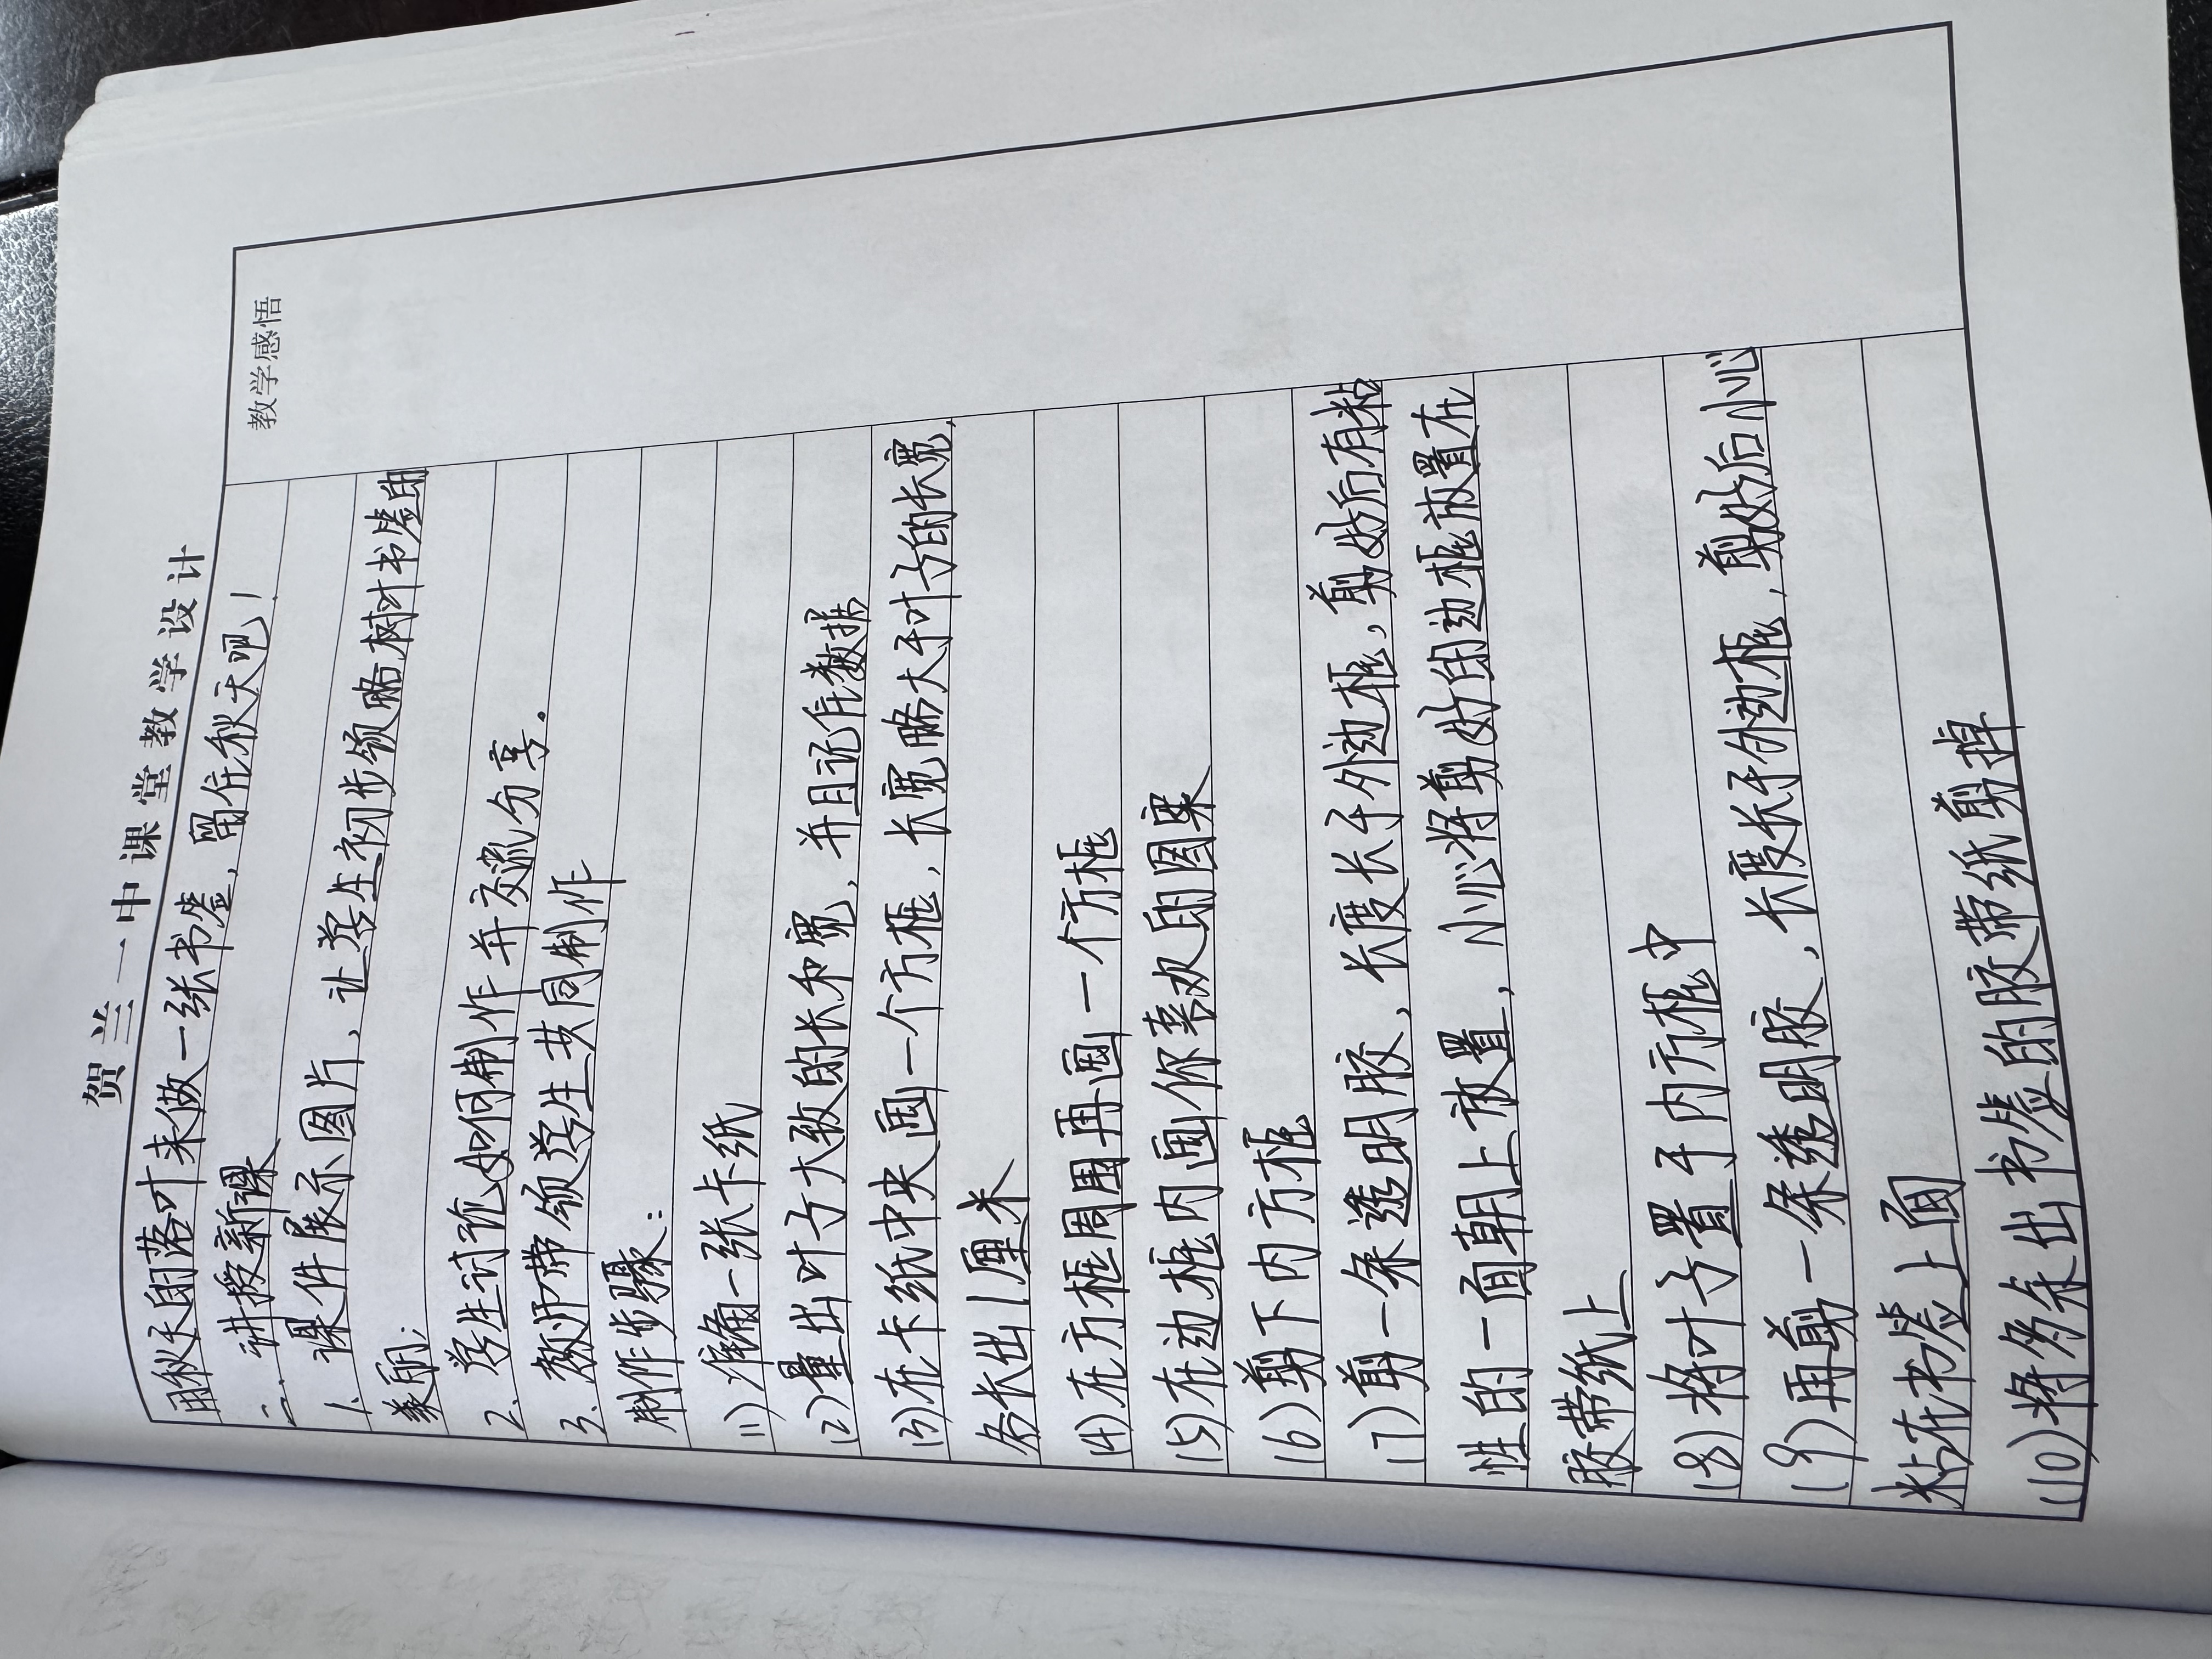 贺兰一中课堂教学设计
教学感悟
用秋天的落叶来做一张书签，留住秋天吧！
二、讲授新课
1. 课件展示图片，让学生初步领略树叶书签的
美丽；
2. 学生讨论如何制作并交流分享。
3. 教师带领学生共同制作
制作步骤：
(1)准备一张卡纸
(2)量出叶子大致的长和宽，并且记住数据
(3)在卡纸中央画一个方框，长宽略大于叶子的长宽，
各长出1厘米
(4)在方框周围再画一个方框
(5)在边框内画你喜欢的图案
(6)剪下内方框
(7)剪一条透明胶，长度长于外边框，剪好后有粘
性的一面朝上放置，小心将剪好的边框放置在
胶带纸上
(8)将叶子置于内方框中
(9)再剪一条透明胶，长度长于外边框，剪好后小心
粘在书签上面
(10)将多余出书签的胶带纸剪掉